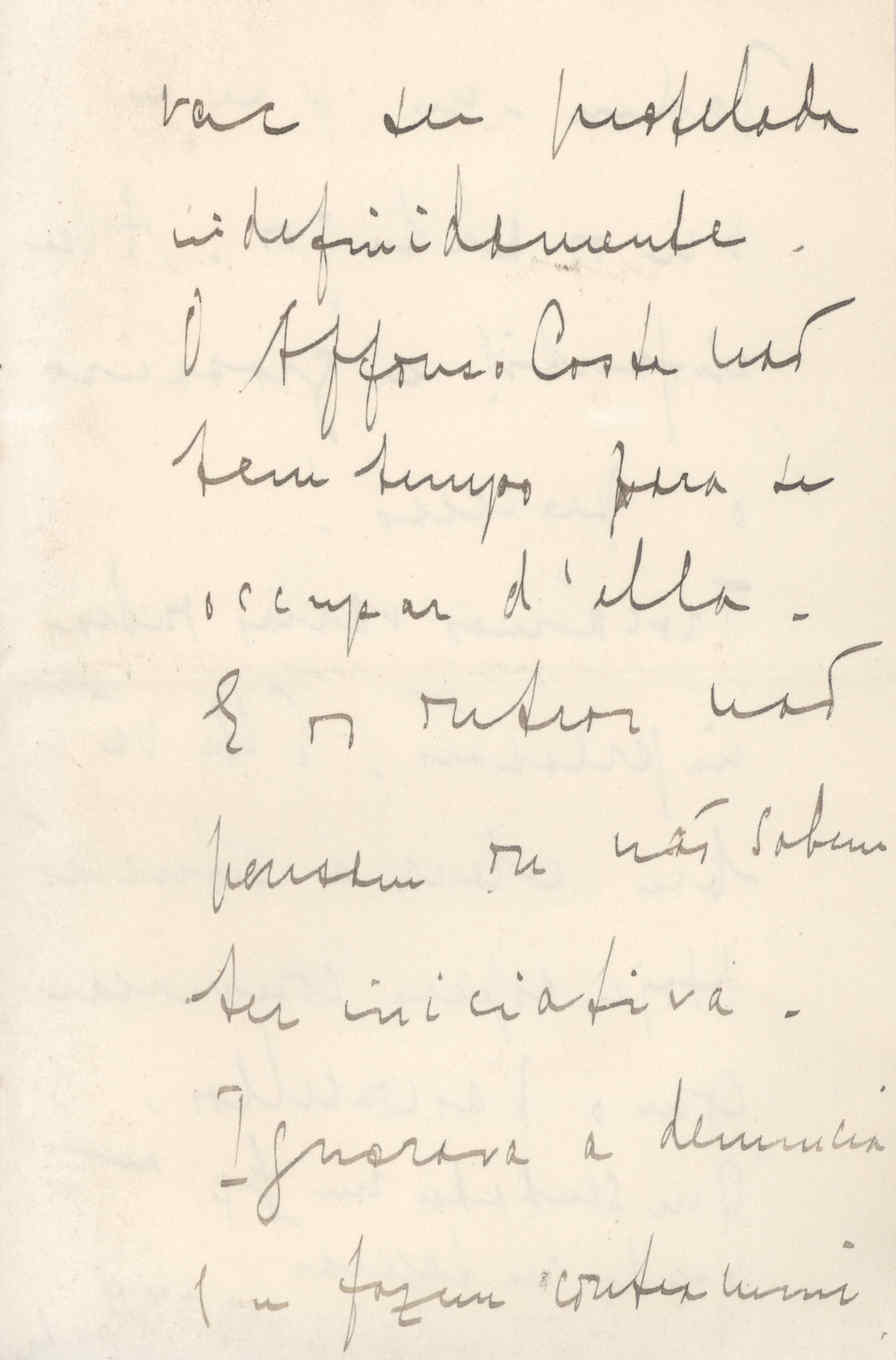 vae ser protelada
indefinidamente.
O Affonso Costa não
tem tempo para se
occupar d'ella.
E os outros não
pensam ou não sabem
ter iniciativa.
Ignorava a denuncia
q se fazem contra mim